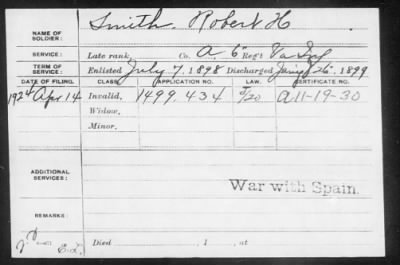 NAME OF SOLDIER: Smith, Robert H
SERVICE: Late rank, Co. A, 6" Reg't Va Inf
TERM OF SERVICE: Enlisted July 7, 1898 Discharged 26, 1899
DATE OF FILING. CLASS. APPLICATION NO. LAW. CERTIFICATE NO.
1924 Apr 14 Invalid, 1499.434 A11-19-30
Widow,
Minor,
ADDITIONAL SERVICES: War with Spain.
REMARKS:
Died , 1 , at